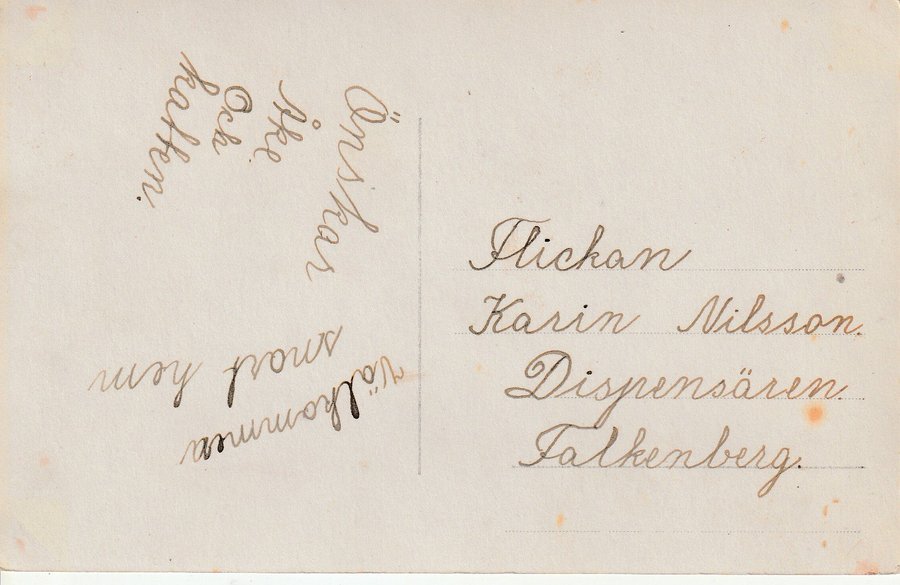 Välkommen
snart hem
Önskar
Åke
Och
katten.
Flickan
Karin Nilsson.
Dispensären.
Falkenberg.